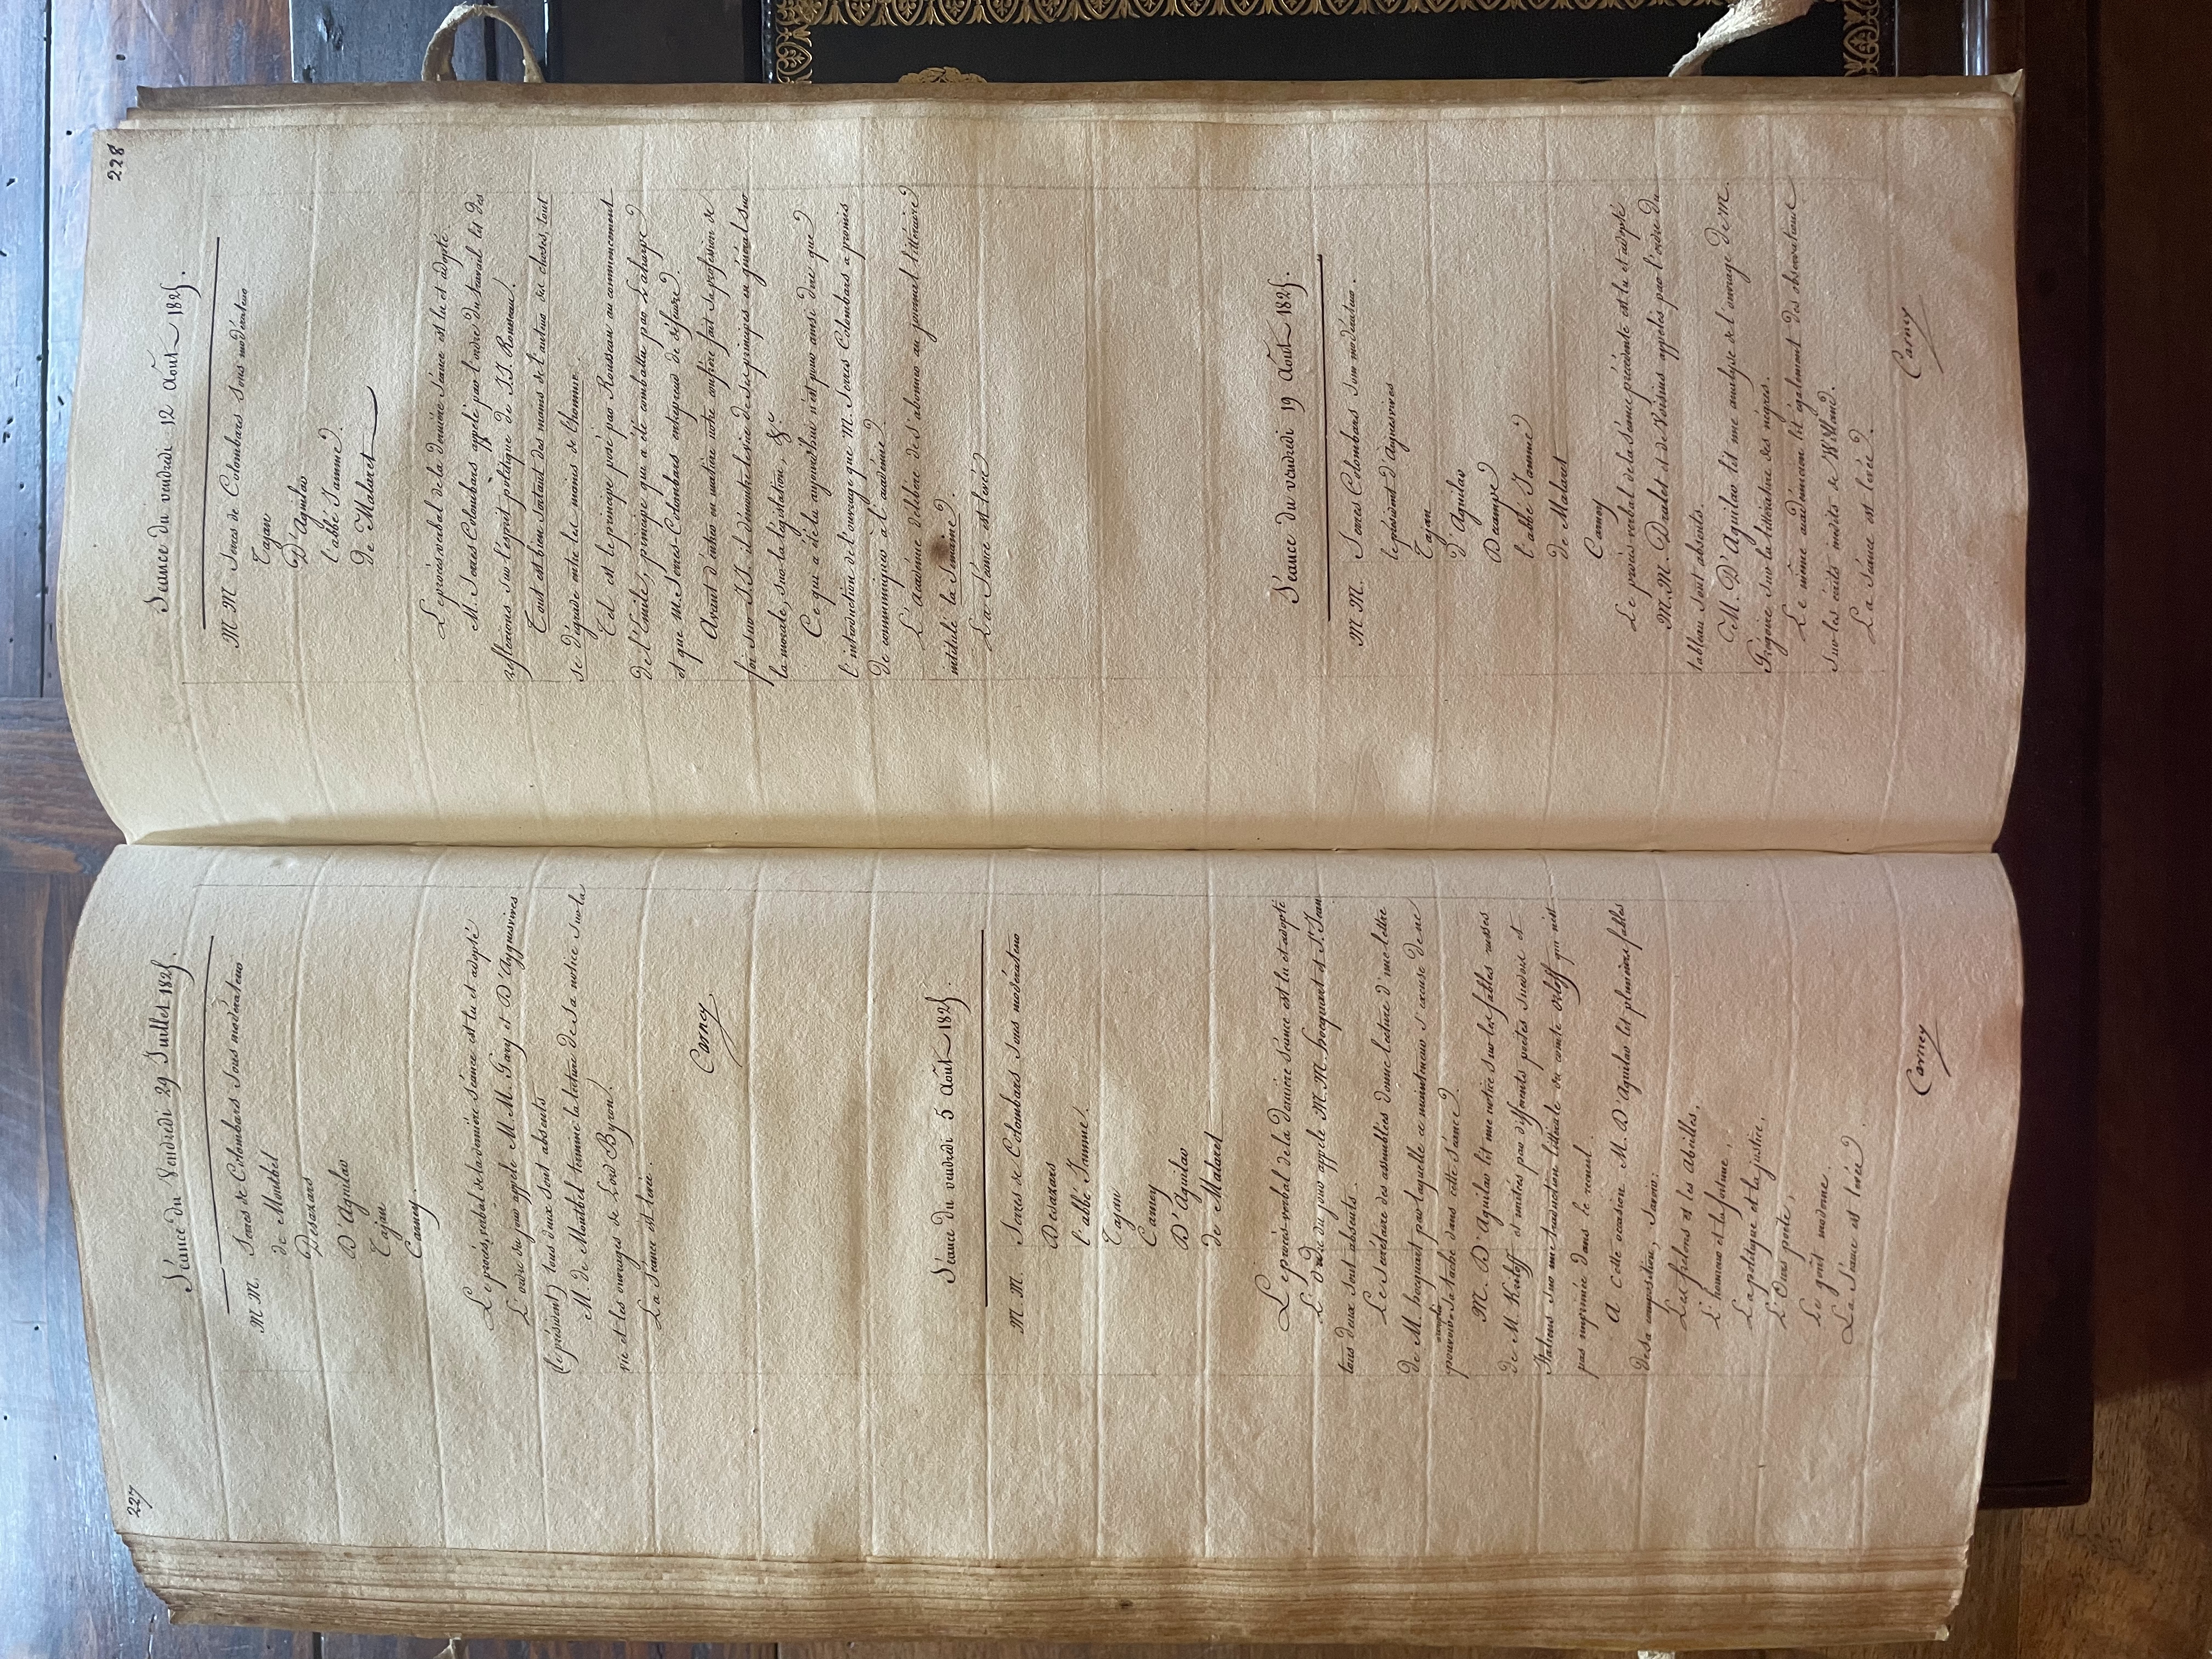 227
Séance du Vendredi 29 Juillet 1825.
M M. Serres de Colombars sous modérateur
de Montbel
Desazars
D'Aguilar
Tajan
Carney.
Le procès verbal de la dernière séance est lu et adopté
L'ordre du jour appelle M. M. Gary et D'Ayguesvives
(le président) tous deux sont absents
M. de Montbel termine la lecture de sa notice sur la
vie et les ouvrages de Lord Byron.
La séance est levée.
Carney
Séance du vendredi 5 Août 1825.
M M. Serres de Colombars sous modérateur
Desazars
l'abbé Jamme.
Tajan
Carney
D'Aguilar
de Malaret
Le procès verbal de la dernière séance est lu et adopté
L'ordre du jour appelle M. M. hocquart et St. Jean
tous deux sont absents.
Le Secrétaire des assemblées donne lecture d'une lettre
de M. hocquart par laquelle ce mainteneur s'excuse de ne
pouvoir remplir sa tache dans cette séance.
M. D'Aguilar lit une notice sur les fables russes
de M. Kriloff et imitées par différents poètes suedois et
Italiens sur une traduction littérale du comte Orloff qui n'est
pas imprimée dans le recueil.
A cette occasion M. D'Aguilar lit plusieurs fables
de sa composition, savoir:
Les frelons et les abeilles,
L'honneur et la fortune,
La politique et la justice,
L'Ours poète,
Le goût moderne.
La séance est levée.
Carney
228
Séance du vendredi 12 Août 1825.
M M Serres de Colombars sous modérateur
Tajan
D'Aguilar
l'abbé Jamme.
de Malaret
Le procès verbal de la dernière séance est lu et adopté.
M. Serres Colombars appelé par l'ordre du travail lit des
reflexions sur l'esprit politique de J.J. Rousseau.
Tout est bien sortant des mains de l'auteur des choses, tout
se dégrade entre les mains de l'homme.
Tel est le principe posé par Rousseau au commencement
de l'Emile, principe qui a été combattu par Laharpe
et que M. Serres-Colombars entreprend de défendre.
Avant d'entrer en matière notre confrère fait sa profession de
foi sur J.J. il démontre le vice de ses principes en général sur
la morale, sur la législation, &c
Ce qui a été lu aujourd'hui n'est pour ainsi dire que
l'introduction de l'ouvrage que M. Serres Colombars a promis
de communiquer à l'académie.
L'Académie délibère de s'abonner au journal littéraire
intitulé la Semaine.
La séance est levée
Séance du vendredi 19 Août 1825.
M M. Serres Colombars sous modérateur.
le président d'Aiguesvives
Tajan
d'Aguilar
Decampe
l'abbé Jamme
de Malaret
Carney
Le procès verbal de la séance précédente est lu et adopté
M. M. Dralet et de Voisins appelés par l'ordre du
tableau sont absents.
M. D'Aguilar lit une analyse de l'ouvrage de M.
Grégoire sur la littérature des nègres.
Le même académicien lit également des observations
sur les écrits inédits de Willand.
La séance est levée.
Carney